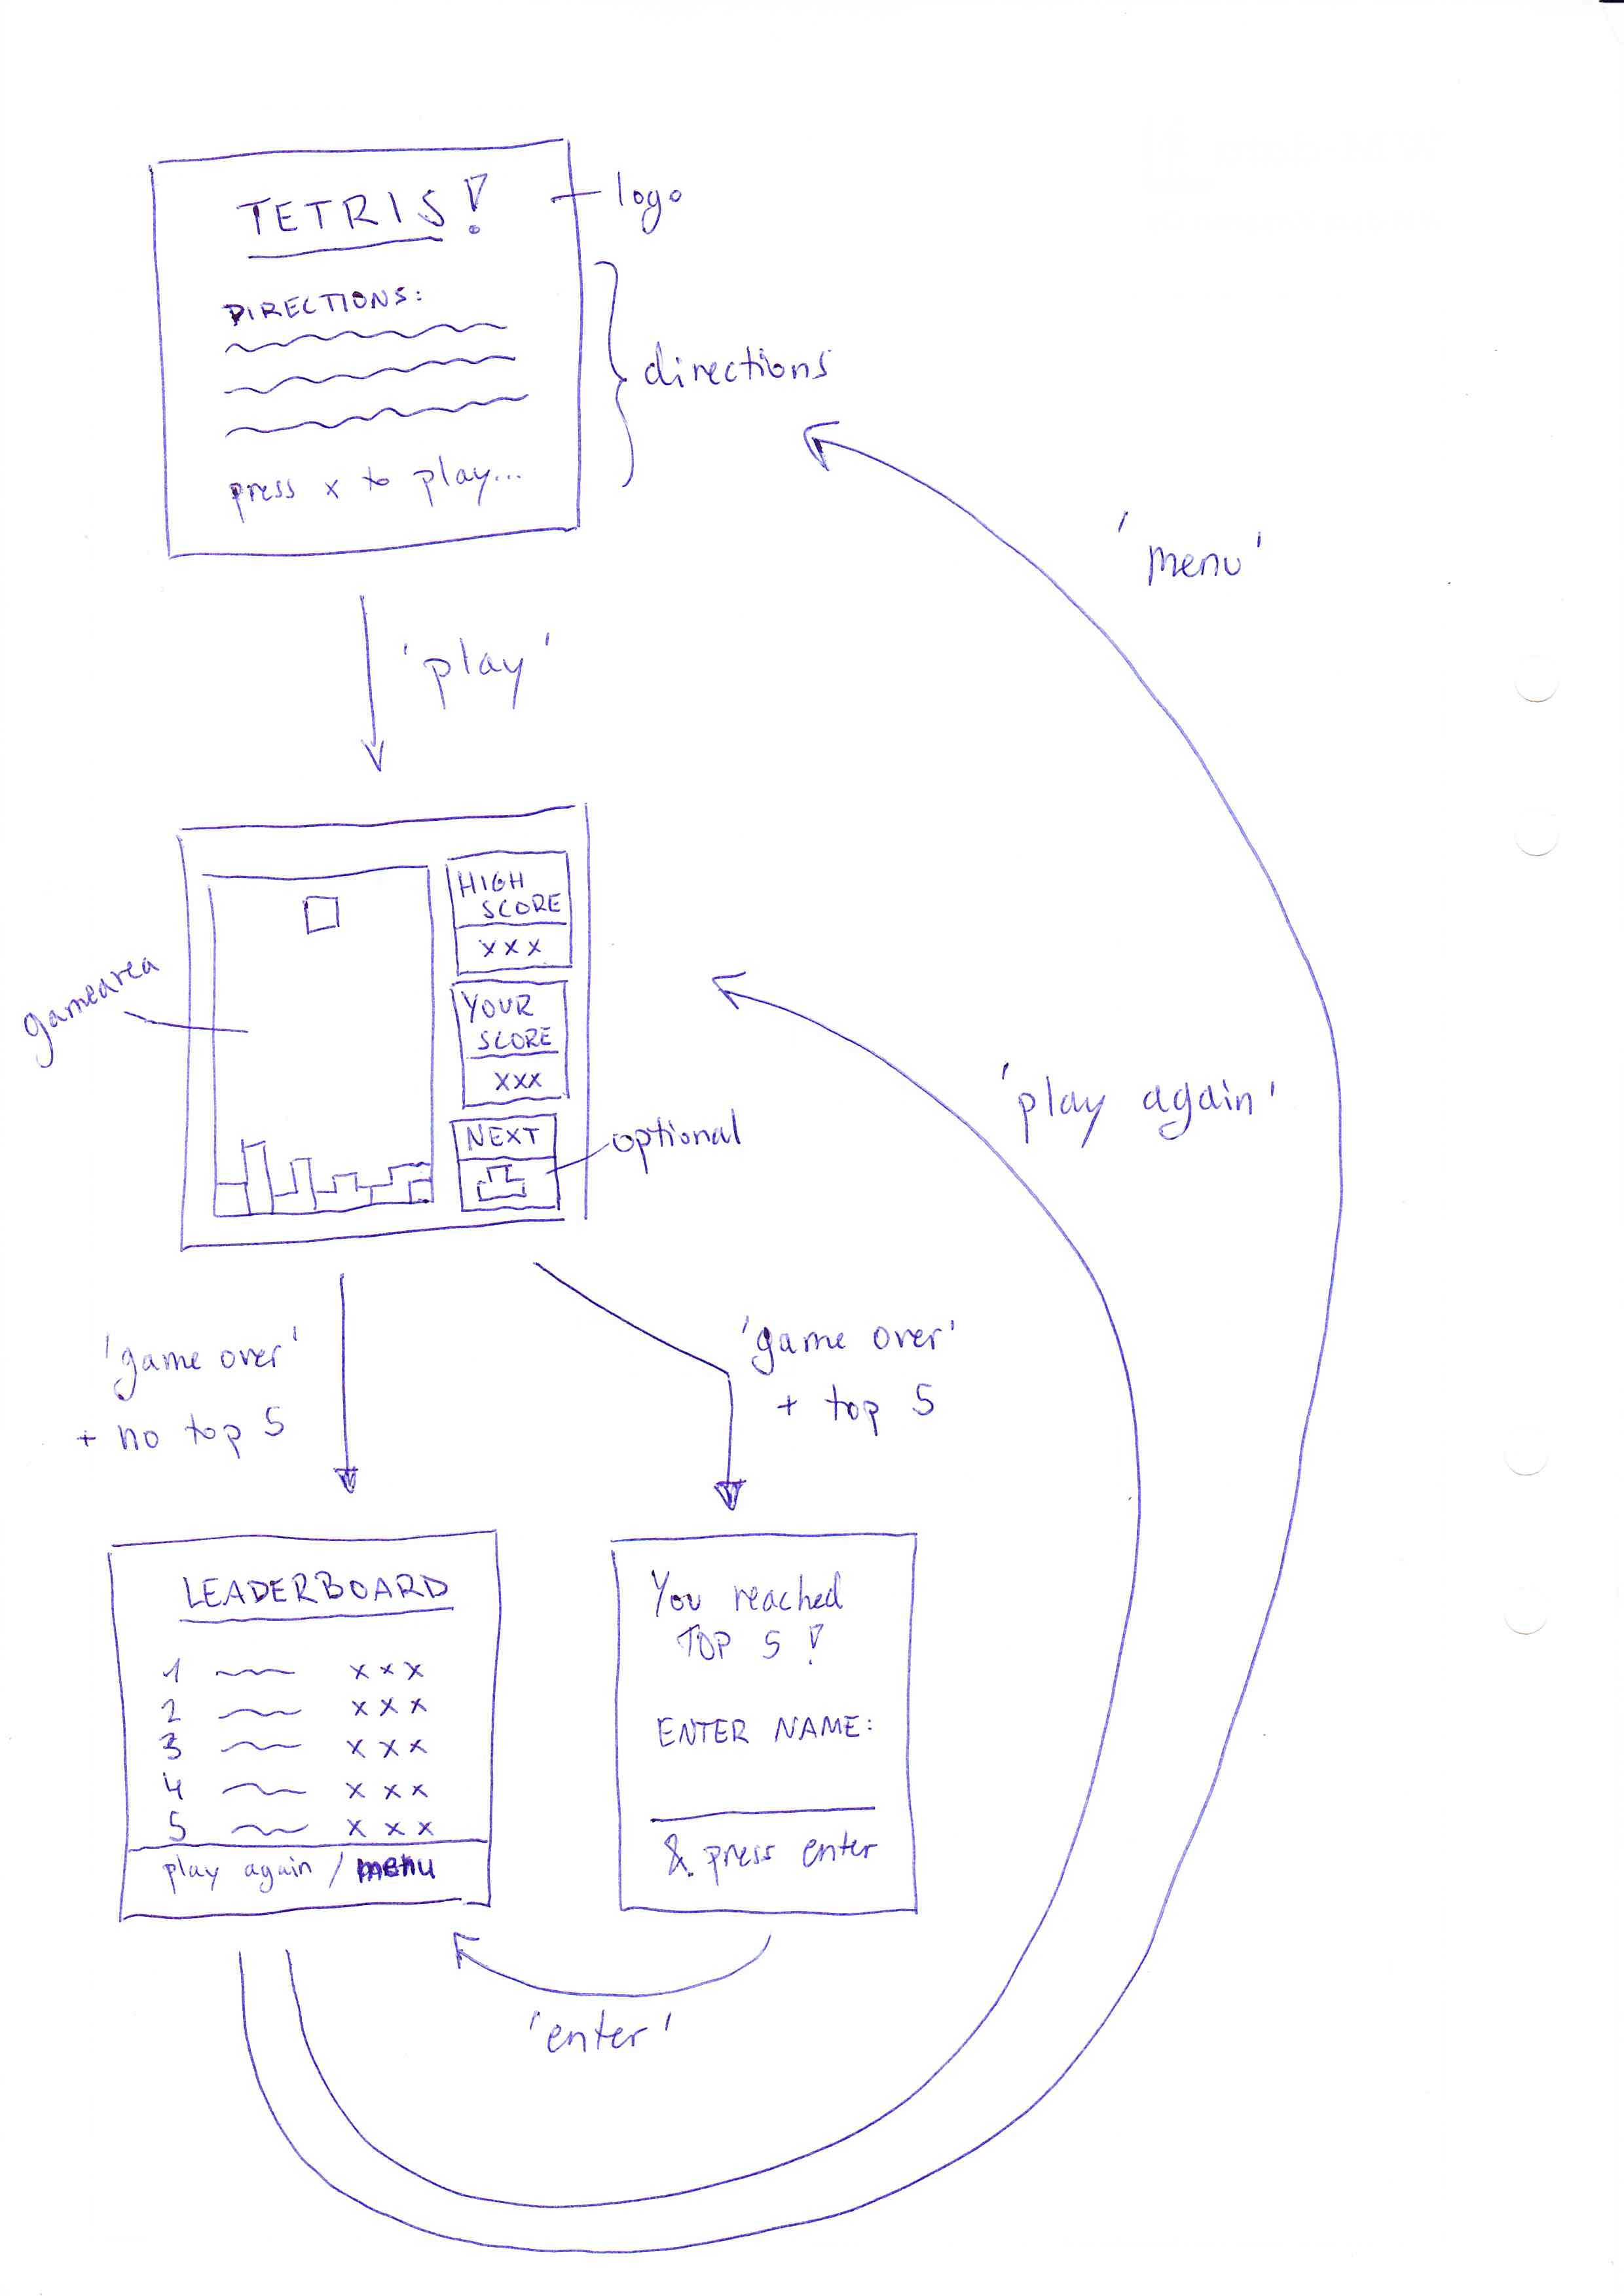 TETRIS!
logo
DIRECTIONS:
directions
press x to play...
'menu'
'play'
HIGH
SCORE
xxx
gamearea
YOUR
SCORE
xxx
NEXT
optional
'play again'
'game over'
+ no top 5
'game over'
+ top 5
LEADERBOARD
1 xxx
2 xxx
3 xxx
4 xxx
5 xxx
play again / menu
You reached
TOP 5!
ENTER NAME:
& press enter
'enter'